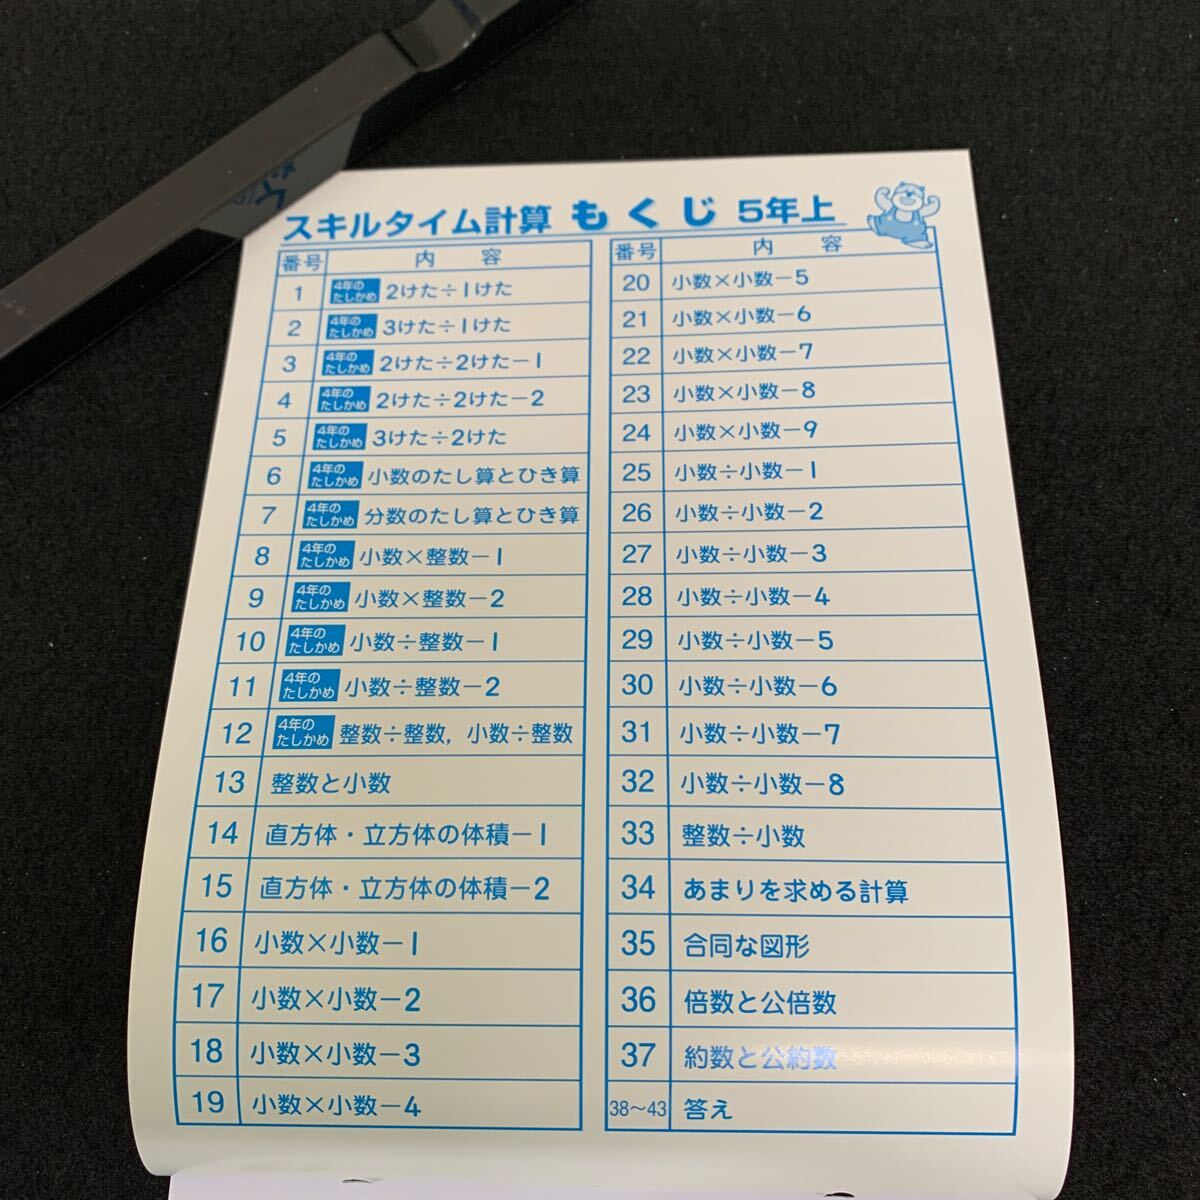 スキルタイム計算 もくじ 5年上
番号 内容
1 4年のたしかめ 2けた÷1けた
2 4年のたしかめ 3けた÷1けた
3 4年のたしかめ 2けた÷2けた－1
4 4年のたしかめ 2けた÷2けた－2
5 4年のたしかめ 3けた÷2けた
6 4年のたしかめ 小数のたし算とひき算
7 4年のたしかめ 分数のたし算とひき算
8 4年のたしかめ 小数×整数－1
9 4年のたしかめ 小数×整数－2
10 4年のたしかめ 小数÷整数－1
11 4年のたしかめ 小数÷整数－2
12 4年のたしかめ 整数÷整数，小数÷整数
13 整数と小数
14 直方体・立方体の体積－1
15 直方体・立方体の体積－2
16 小数×小数－1
17 小数×小数－2
18 小数×小数－3
19 小数×小数－4
番号 内容
20 小数×小数－5
21 小数×小数－6
22 小数×小数－7
23 小数×小数－8
24 小数×小数－9
25 小数÷小数－1
26 小数÷小数－2
27 小数÷小数－3
28 小数÷小数－4
29 小数÷小数－5
30 小数÷小数－6
31 小数÷小数－7
32 小数÷小数－8
33 整数÷小数
34 あまりを求める計算
35 合同な図形
36 倍数と公倍数
37 約数と公約数
38～43 答え